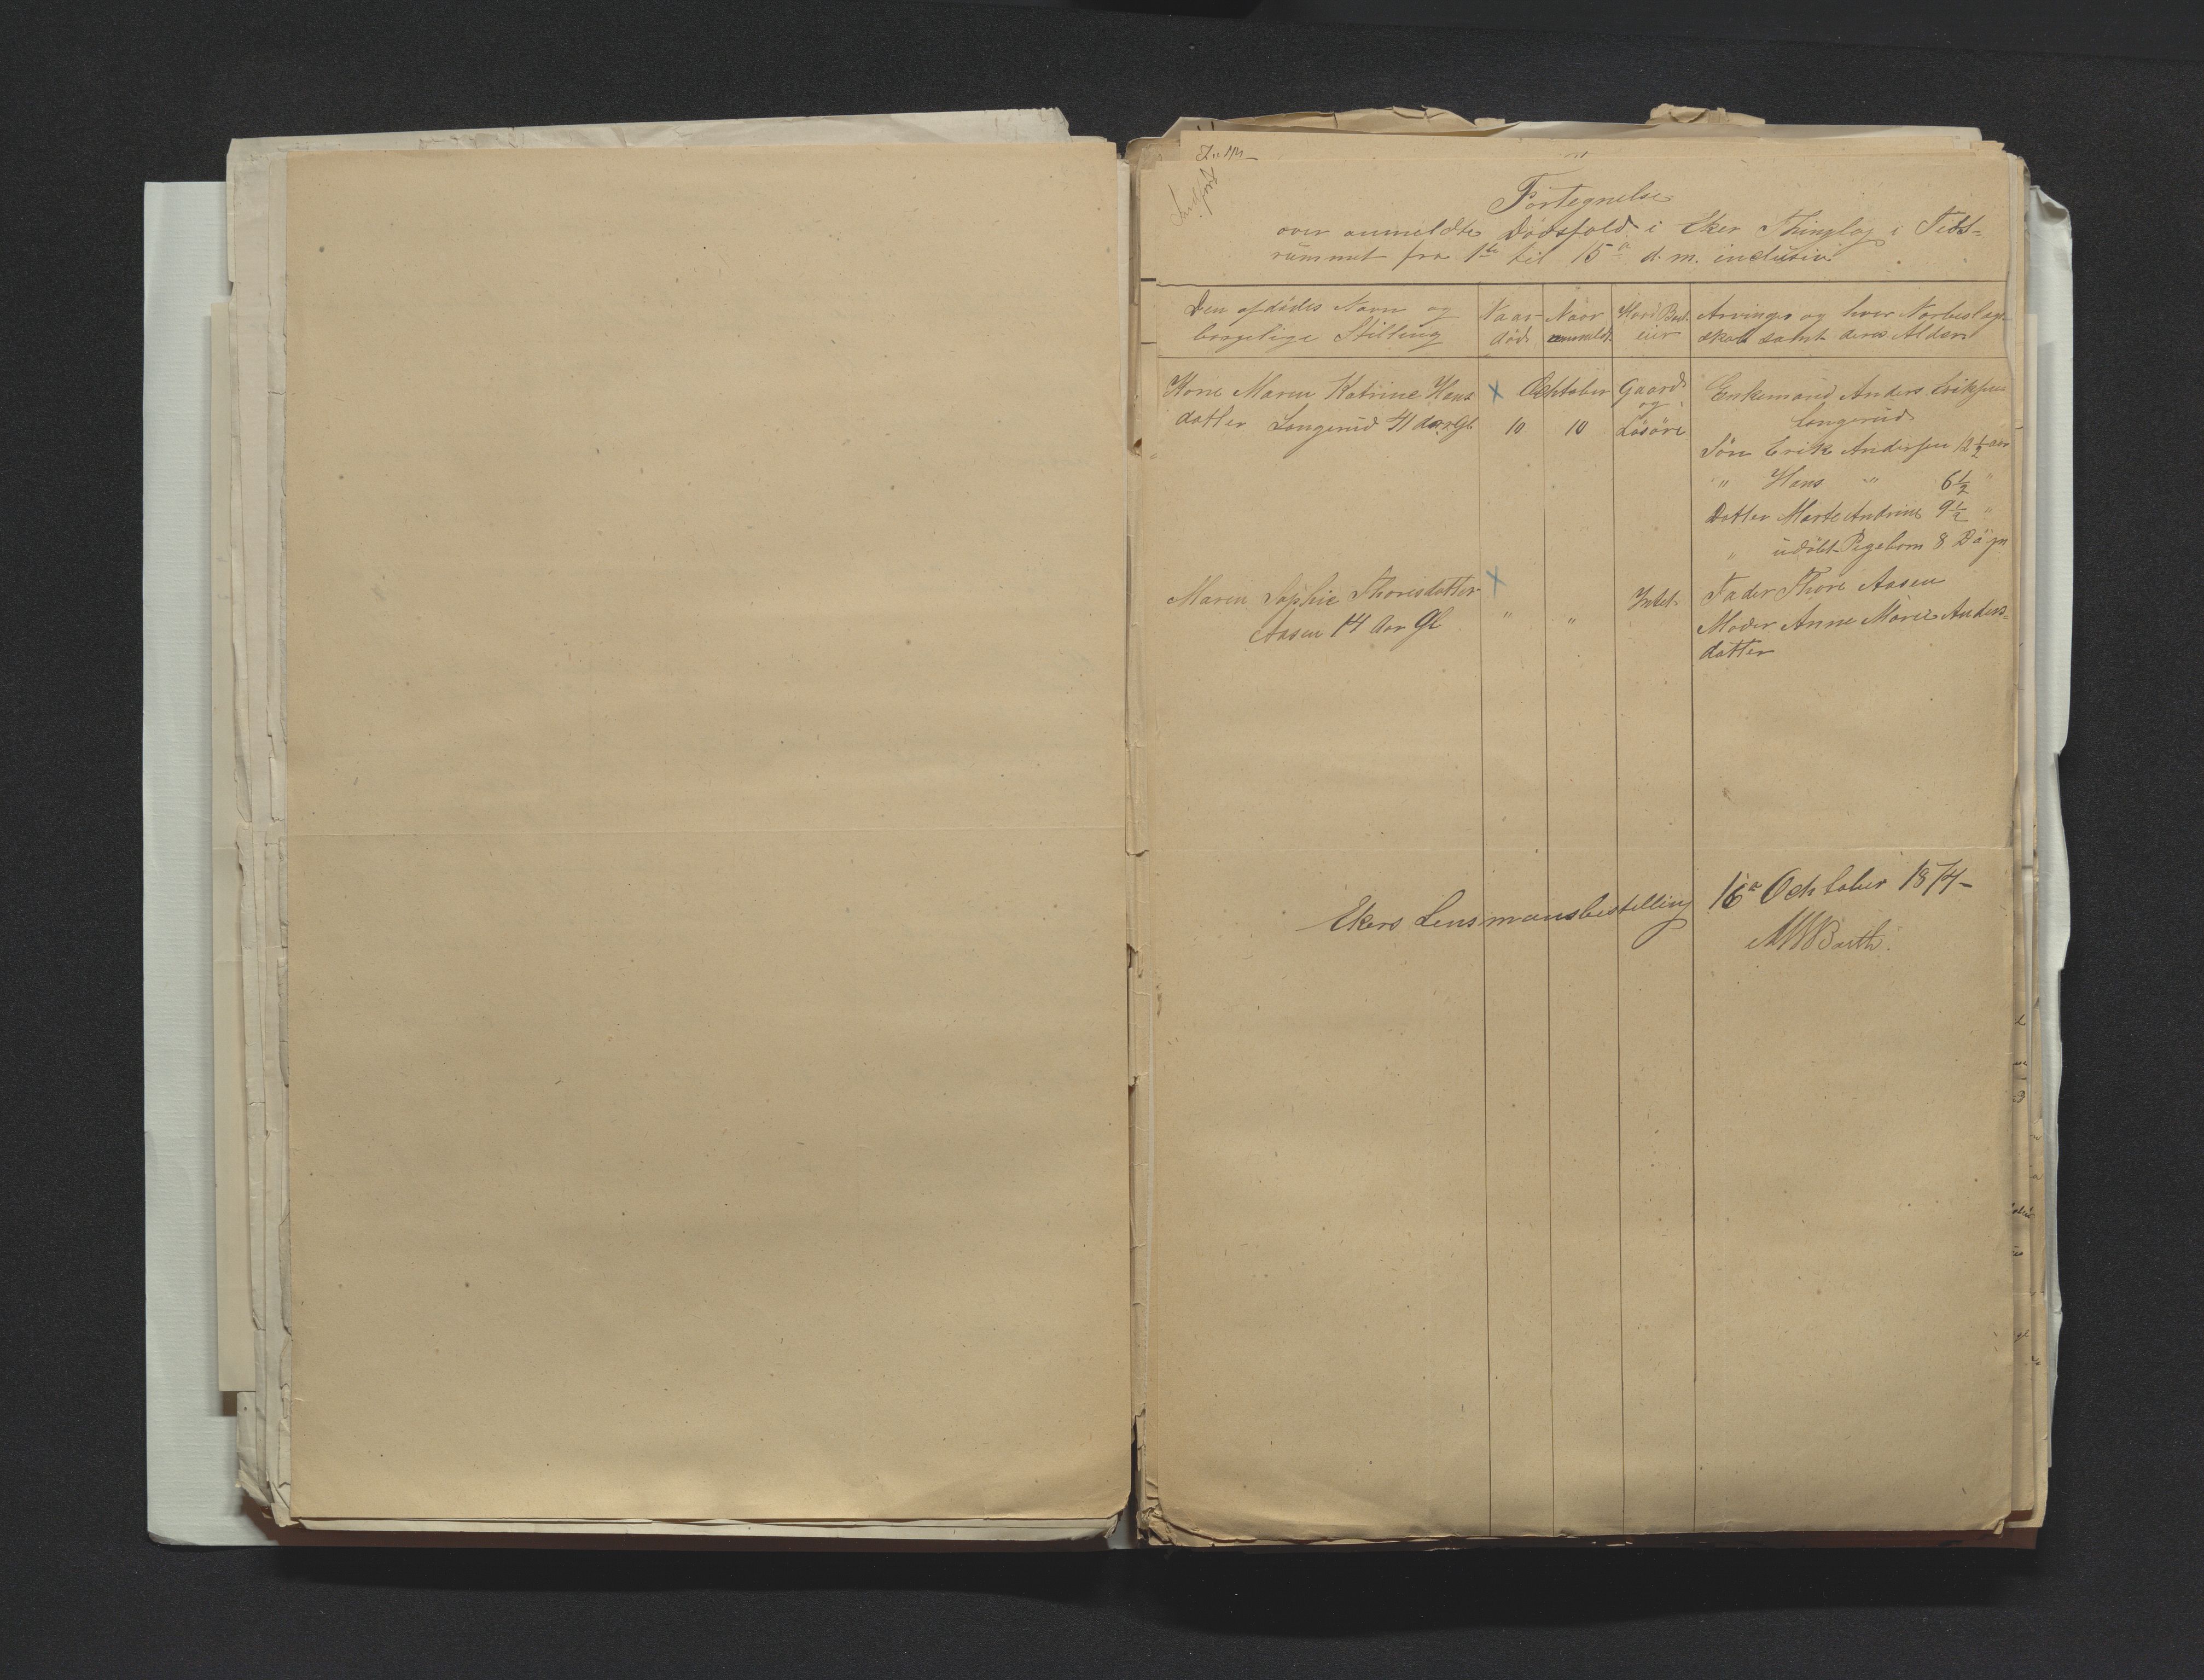 Indført
Fortegnelse
over anmeldte Dødsfald i Eker Thinglag i Tids-
rummet fra 1ste til 15de d. m. inclusiv.
Den afdødes Navn og
borgelige Stilling
Naar
død
Naar
anmeldt
Hvad Boet
eier
Arvinger og hver Norbeslægt-
skab samt deres Alder
Kone Maren Katrine Hans
datter Longerud 41 aar gl.
Ochtober
10
10
Gaard
og
Løsøre
Enkemand Anders Eriksen
Longerud
Søn Erik Andersen 12 1/2 aar
" Hans " 6 1/2 "
Datter Marte Andrine 9 1/2 "
" udøbt Pigebarn 8 Døgn
Maren Sophie Thoresdatter
Aasen 14 Aar Gl
"
"
Intet
Fader Thore Aasen
Moder Anne Marie Anders-
datter
Ekers Lensmansbestilling 16de Ochtober 1874
Barth.